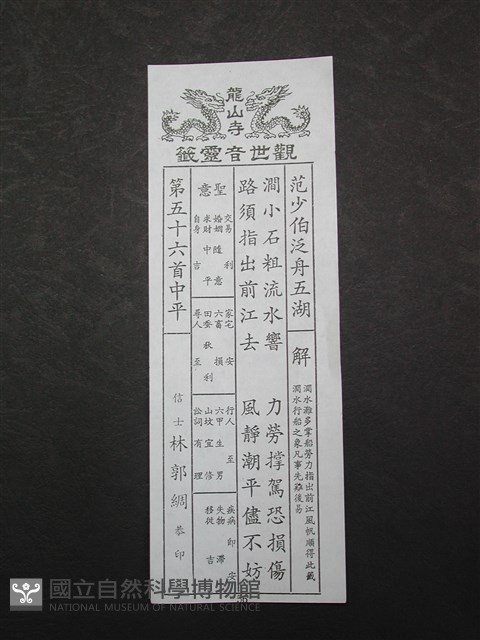 龍山寺
觀世音靈籤
范少伯泛舟五湖
解
澗水灘多掌船勞力指出前江風帆順得此籤
澗水行船之象凡事先難後易
澗小石粗流水響 力勞撐駕恐損傷
路須指出前江去 風靜潮平儘不妨
聖意
交易 利
婚姻 隨意
求財 中平
自身 吉
家宅 安
六畜 損
田蚕 秋利
尋人 至
行人 至
六甲 生男
山坟 宜修
訟詞 有理
疾病 即安
失物 滯
移徙 吉
第五十六首中平
信士 林郭綢 恭印
國立自然科學博物館
NATIONAL MUSEUM OF NATURAL SCIENCE